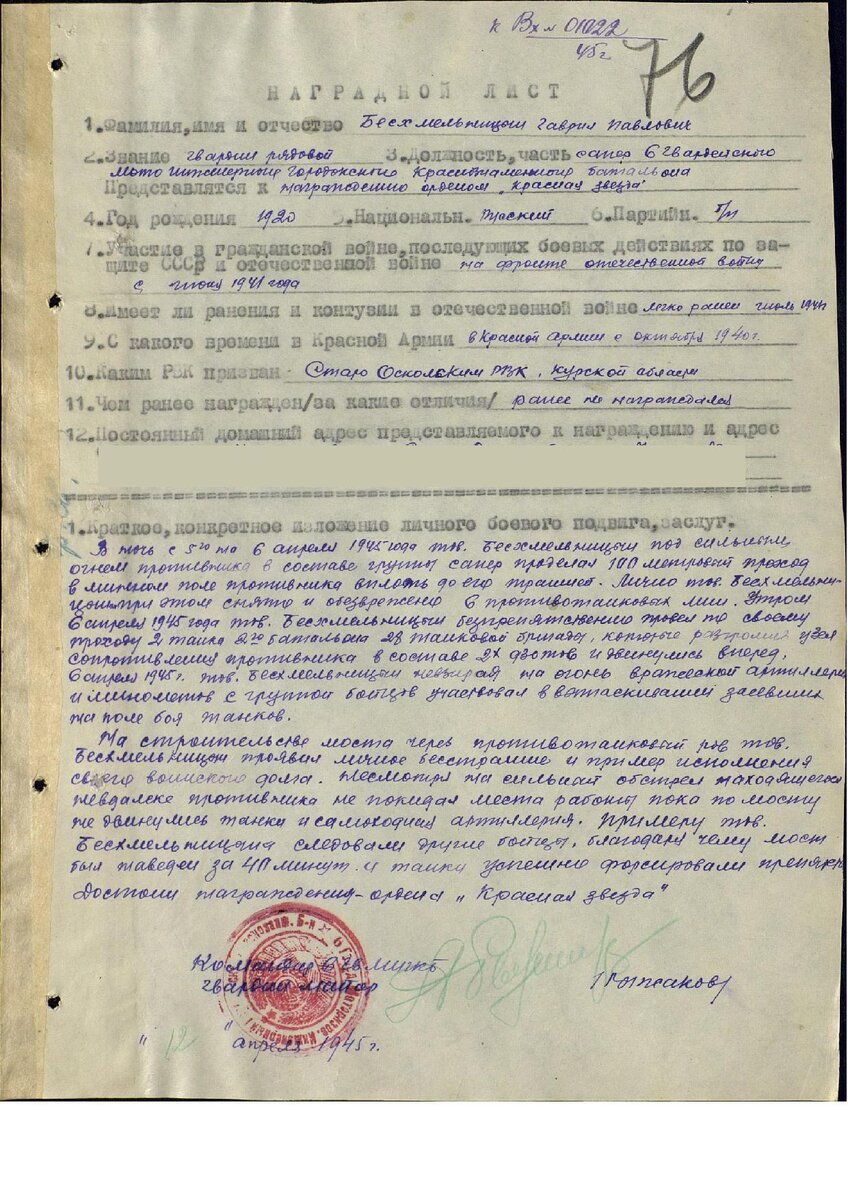 к Вх № 01022
45 г
76
НАГРАДНОЙ ЛИСТ
1.Фамилия,имя и отчество Бесхмельницын Гаврил Павлович
2.Звание гвардии рядовой 3.Должность,часть сапер 6 гвардейского
мото инженерного Городокского Краснознаменного баталиона
Представлятся к награждению орденом „Красная звезда"
4.Год рождения 1920 5.Национальн. Руский 6.Партийн. б/п
7.Участие в гражданской войне,последующих боевых действиях по за-
щите СССР и отечественной войне на фронте отечественной войны
с июня 1941 года
8.Имеет ли ранения и контузии в отечественной войне легко ранен июль 194
9.С какого времени в Красной Армии в Красной Армии с октября 1940 г.
10.Каким РВК призван Старо Оскольским РВК, Курской области
11.Чем ранее награжден/за какие отличия/ ранее не награждался
12.Постоянный домашний адрес представляемого к награждению и адрес
1.Краткое,конкретное изложение личного боевого подвига,заслуг.
В ночь с 5го на 6 апреля 1945 года тов. Бесхмельницын под сильным
огнем противника в составе группы сапер проделал 100 метровый проход
в минном поле противника вплоть до его траншей. Лично тов. Бесхмельни-
цыным при этом снято и обезврежено 6 противотанковых мин. Утром
6 апреля 1945 года тов. Бесхмельницын безпрепятственно провел по своему
проходу 2 танка 2го батальона 28 танковой бригады, которые разгромили узел
сопротивления противника в составе 2х дзотов и двинулись вперед.
6 апреля 1945 г. тов. Бесхмельницын невзирая на огонь вражеской артиллерии
и минометов с группой бойцов участвовал в вытаскивании засевших
на поле боя танков.
На строительстве моста через противотанковый ров тов.
Бесхмельницын проявил личное бесстрашие и пример исполнения
своего воинского долга. Несмотря на сильный обстрел находящегося
невдалеке противника не покидал места работы пока по мосту
не двинулись танки и самоходная артиллерия. Примеру тов.
Бесхмельницына следовали другие бойцы, благодаря чему мост
был наведен за 40 минут и танки успешно форсировали препятс
Достоин награждения ордена „Красная звезда"
Командир 6
гвардии майор
Рыжаков
„ 12 " апреля 1945 г.